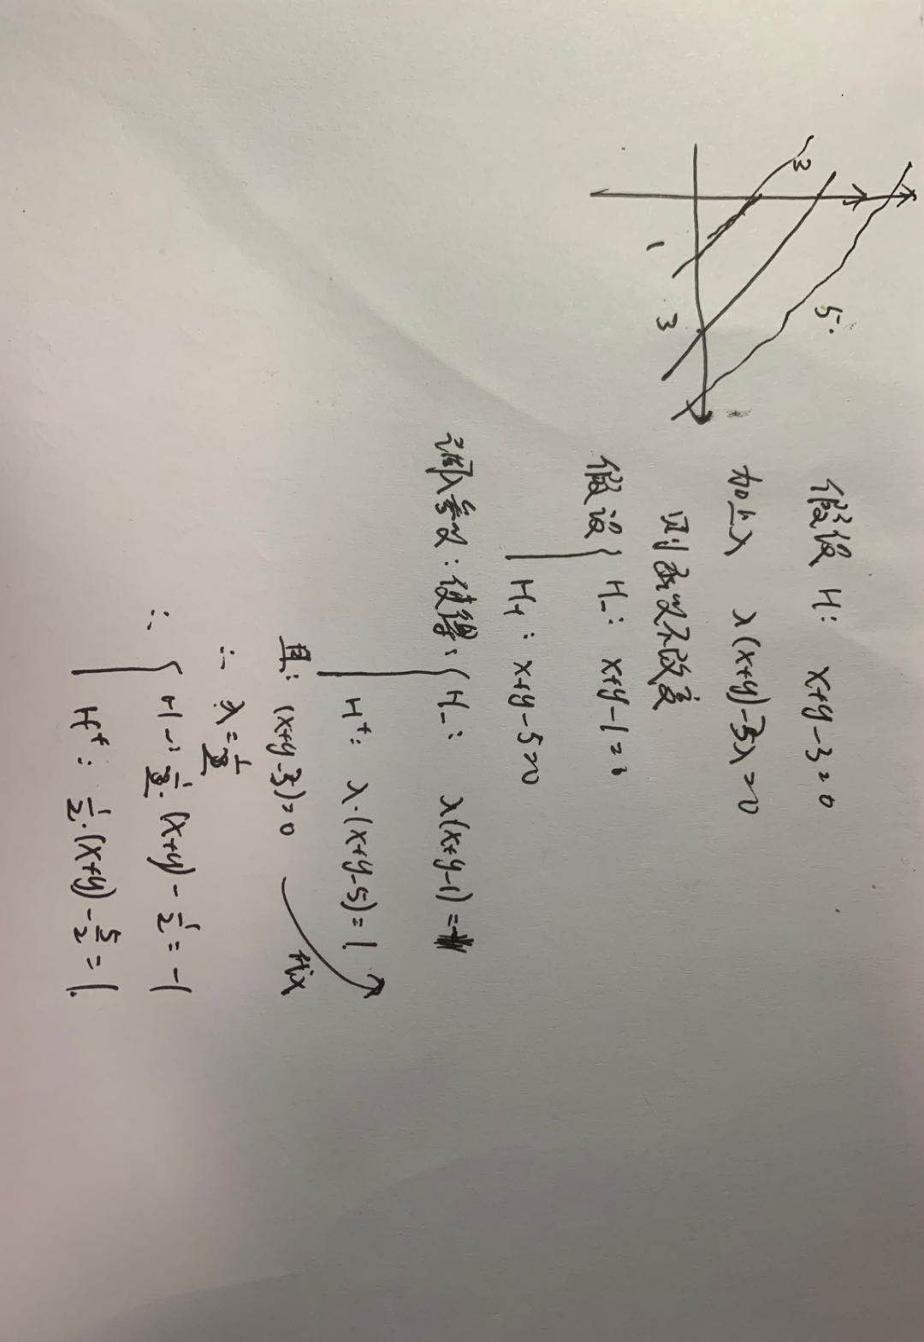 3
5
1
3
假设 H: x+y-3=0
加上λ λ(x+y)-3λ=0
则函数不改变
假设 { H₋: x+y-1=0
H₊: x+y-5=0
使得: { H₋: λ(x+y-1)=-1
H⁺: λ·(x+y-5)=1.
且: (x+y-3)=0
代入
∴ λ=1/2
∴ { H₋: 1/2·(x+y)-1/2=-1
H⁺: 1/2·(x+y)-5/2=1.